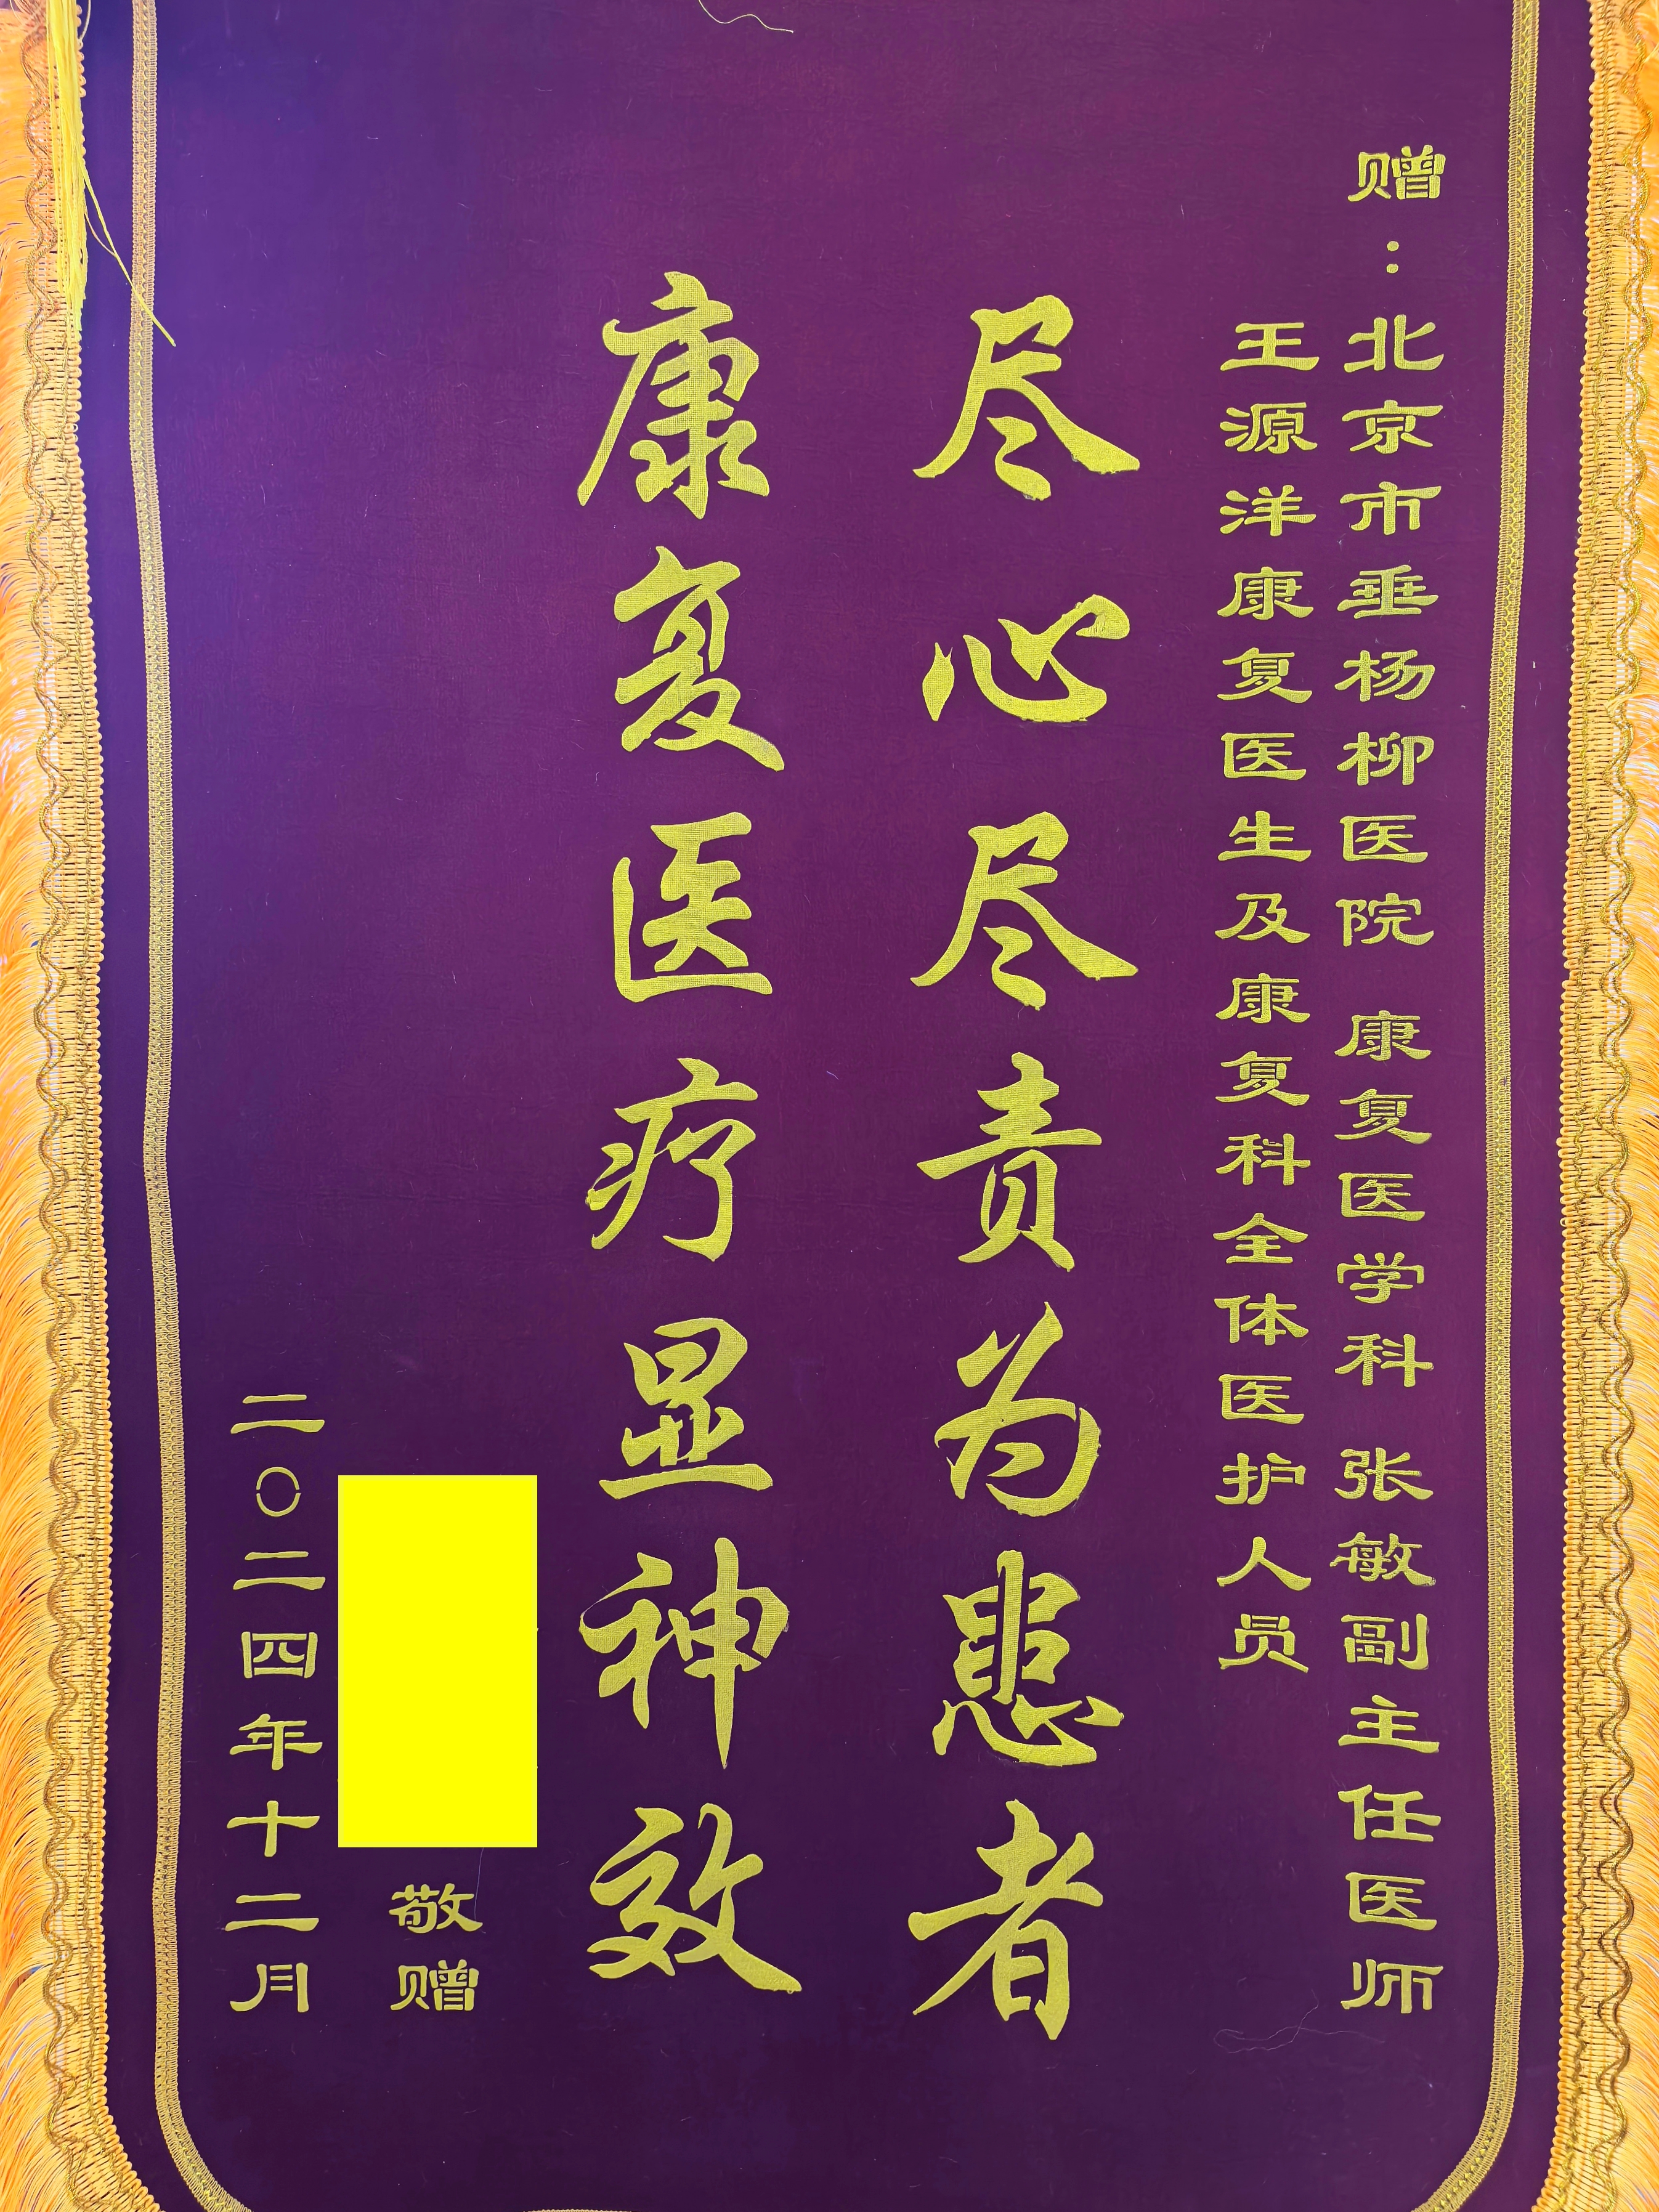 赠：北京市垂杨柳医院 康复医学科 张敏副主任医师
王源洋康复医生及康复科全体医护人员
尽心尽责为患者
康复医疗显神效
敬赠
二〇二四年十二月